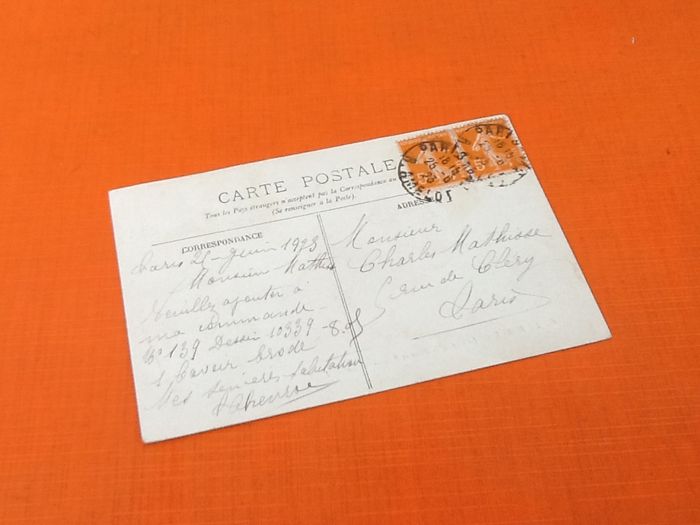 CARTE POSTALE
Tous les Pays étrangers n'acceptent pas la Correspondance au
(Se renseigner à la Poste).
CORRESPONDANCE
ADRES
Paris 25 Juin 1923
Monsieur Mathis
Veuillez ajouter à
ma commande
No 139 Dessin 10339 -
1
Mes sincères salutation
Monsieur
Charles Mathisse
rue de Cléry
Paris
PARIS
PARIS